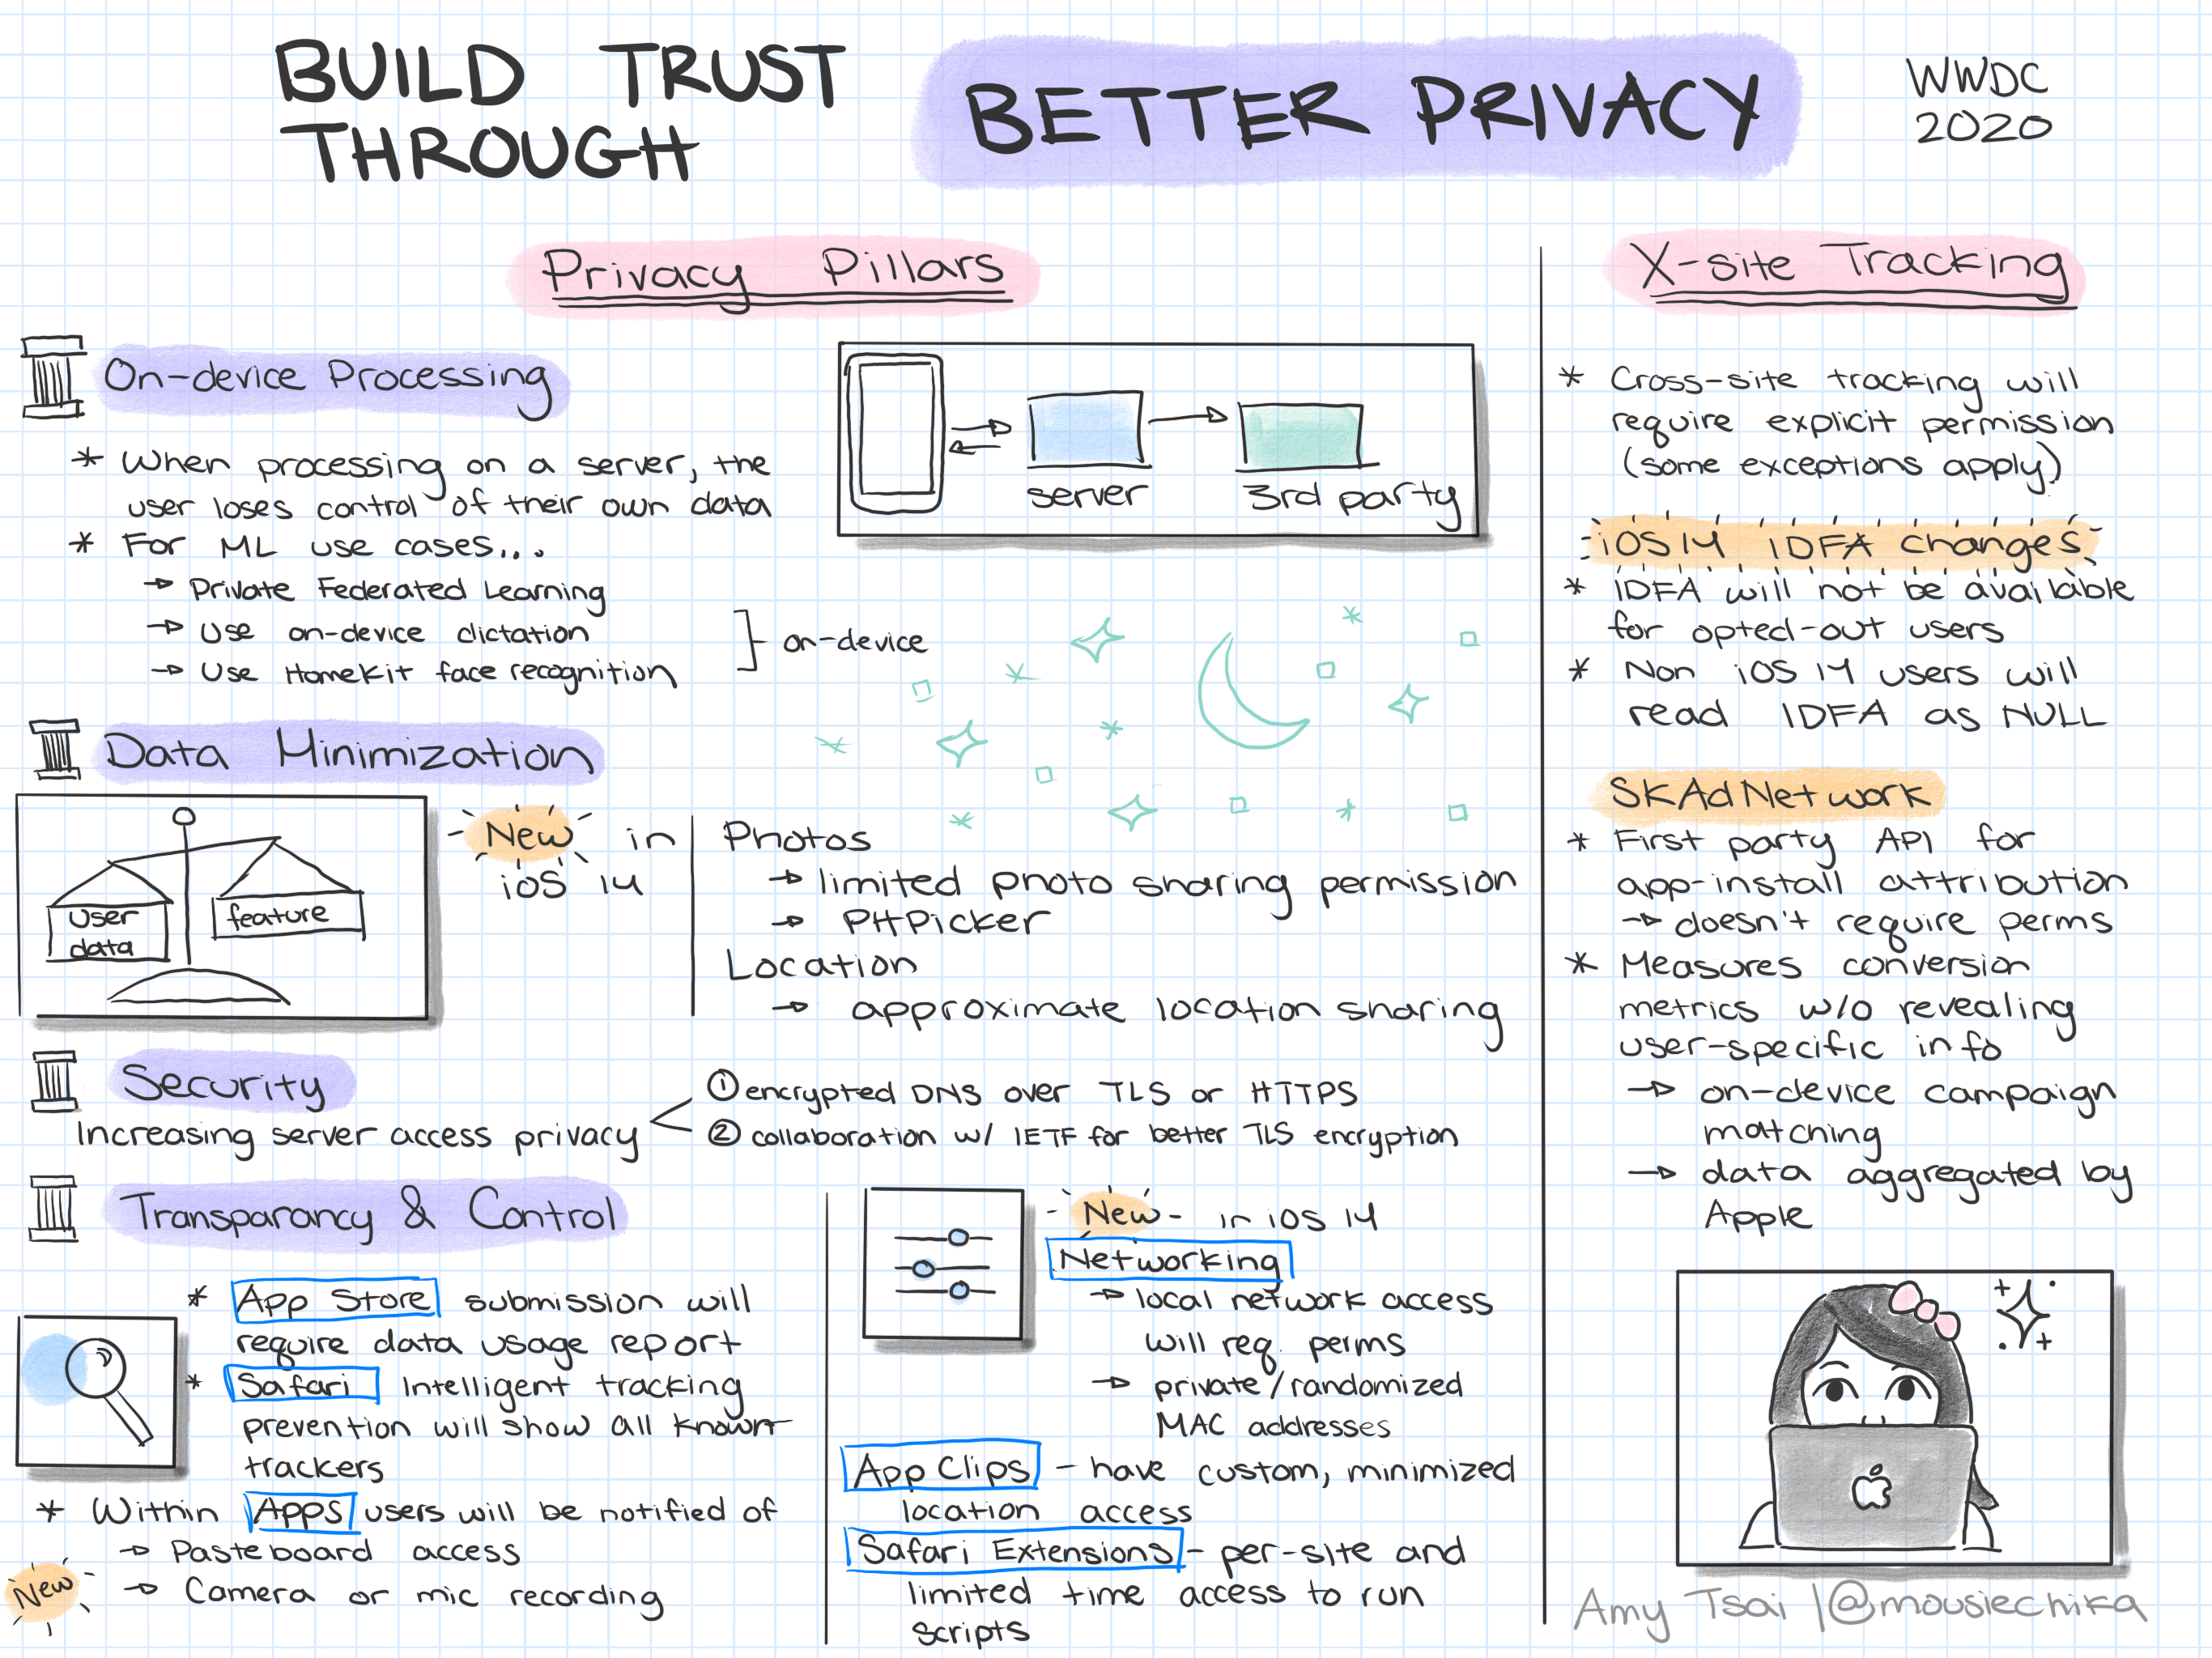 BUILD TRUST
THROUGH
BETTER PRIVACY
WWDC
2020
Privacy Pillars
On-device Processing
* When processing on a server, the
user loses control of their own data
* For ML use cases...
→ Private Federated Learning
→ Use on-device dictation
→ Use HomeKit face recognition
on-device
server
3rd party
Data Minimization
user
data
feature
New in
iOS 14
Photos
→ limited photo sharing permission
→ PHPicker
Location
→ approximate location sharing
Security
Increasing server access privacy
① encrypted DNS over TLS or HTTPS
② collaboration w/ IETF for better TLS encryption
Transparancy & Control
* App Store submission will
require data usage report
* Safari Intelligent tracking
prevention will show all known
trackers
* Within Apps users will be notified of
→ Pasteboard access
New → Camera or mic recording
New in iOS 14
Networking
→ local network access
will req. perms
→ private/randomized
MAC addresses
App Clips - have custom, minimized
location access
Safari Extensions - per-site and
limited time access to run
scripts
X-site Tracking
* Cross-site tracking will
require explicit permission
(some exceptions apply)
iOS 14 IDFA changes
* IDFA will not be available
for opted-out users
* Non iOS 14 users will
read IDFA as NULL
SKAdNetwork
* First party API for
app-install attribution
→ doesn't require perms
* Measures conversion
metrics w/o revealing
user-specific info
→ on-device campaign
matching
→ data aggregated by
Apple
Amy Tsai | @mousiechika